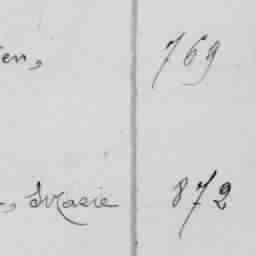 en, 769
, Marie 872